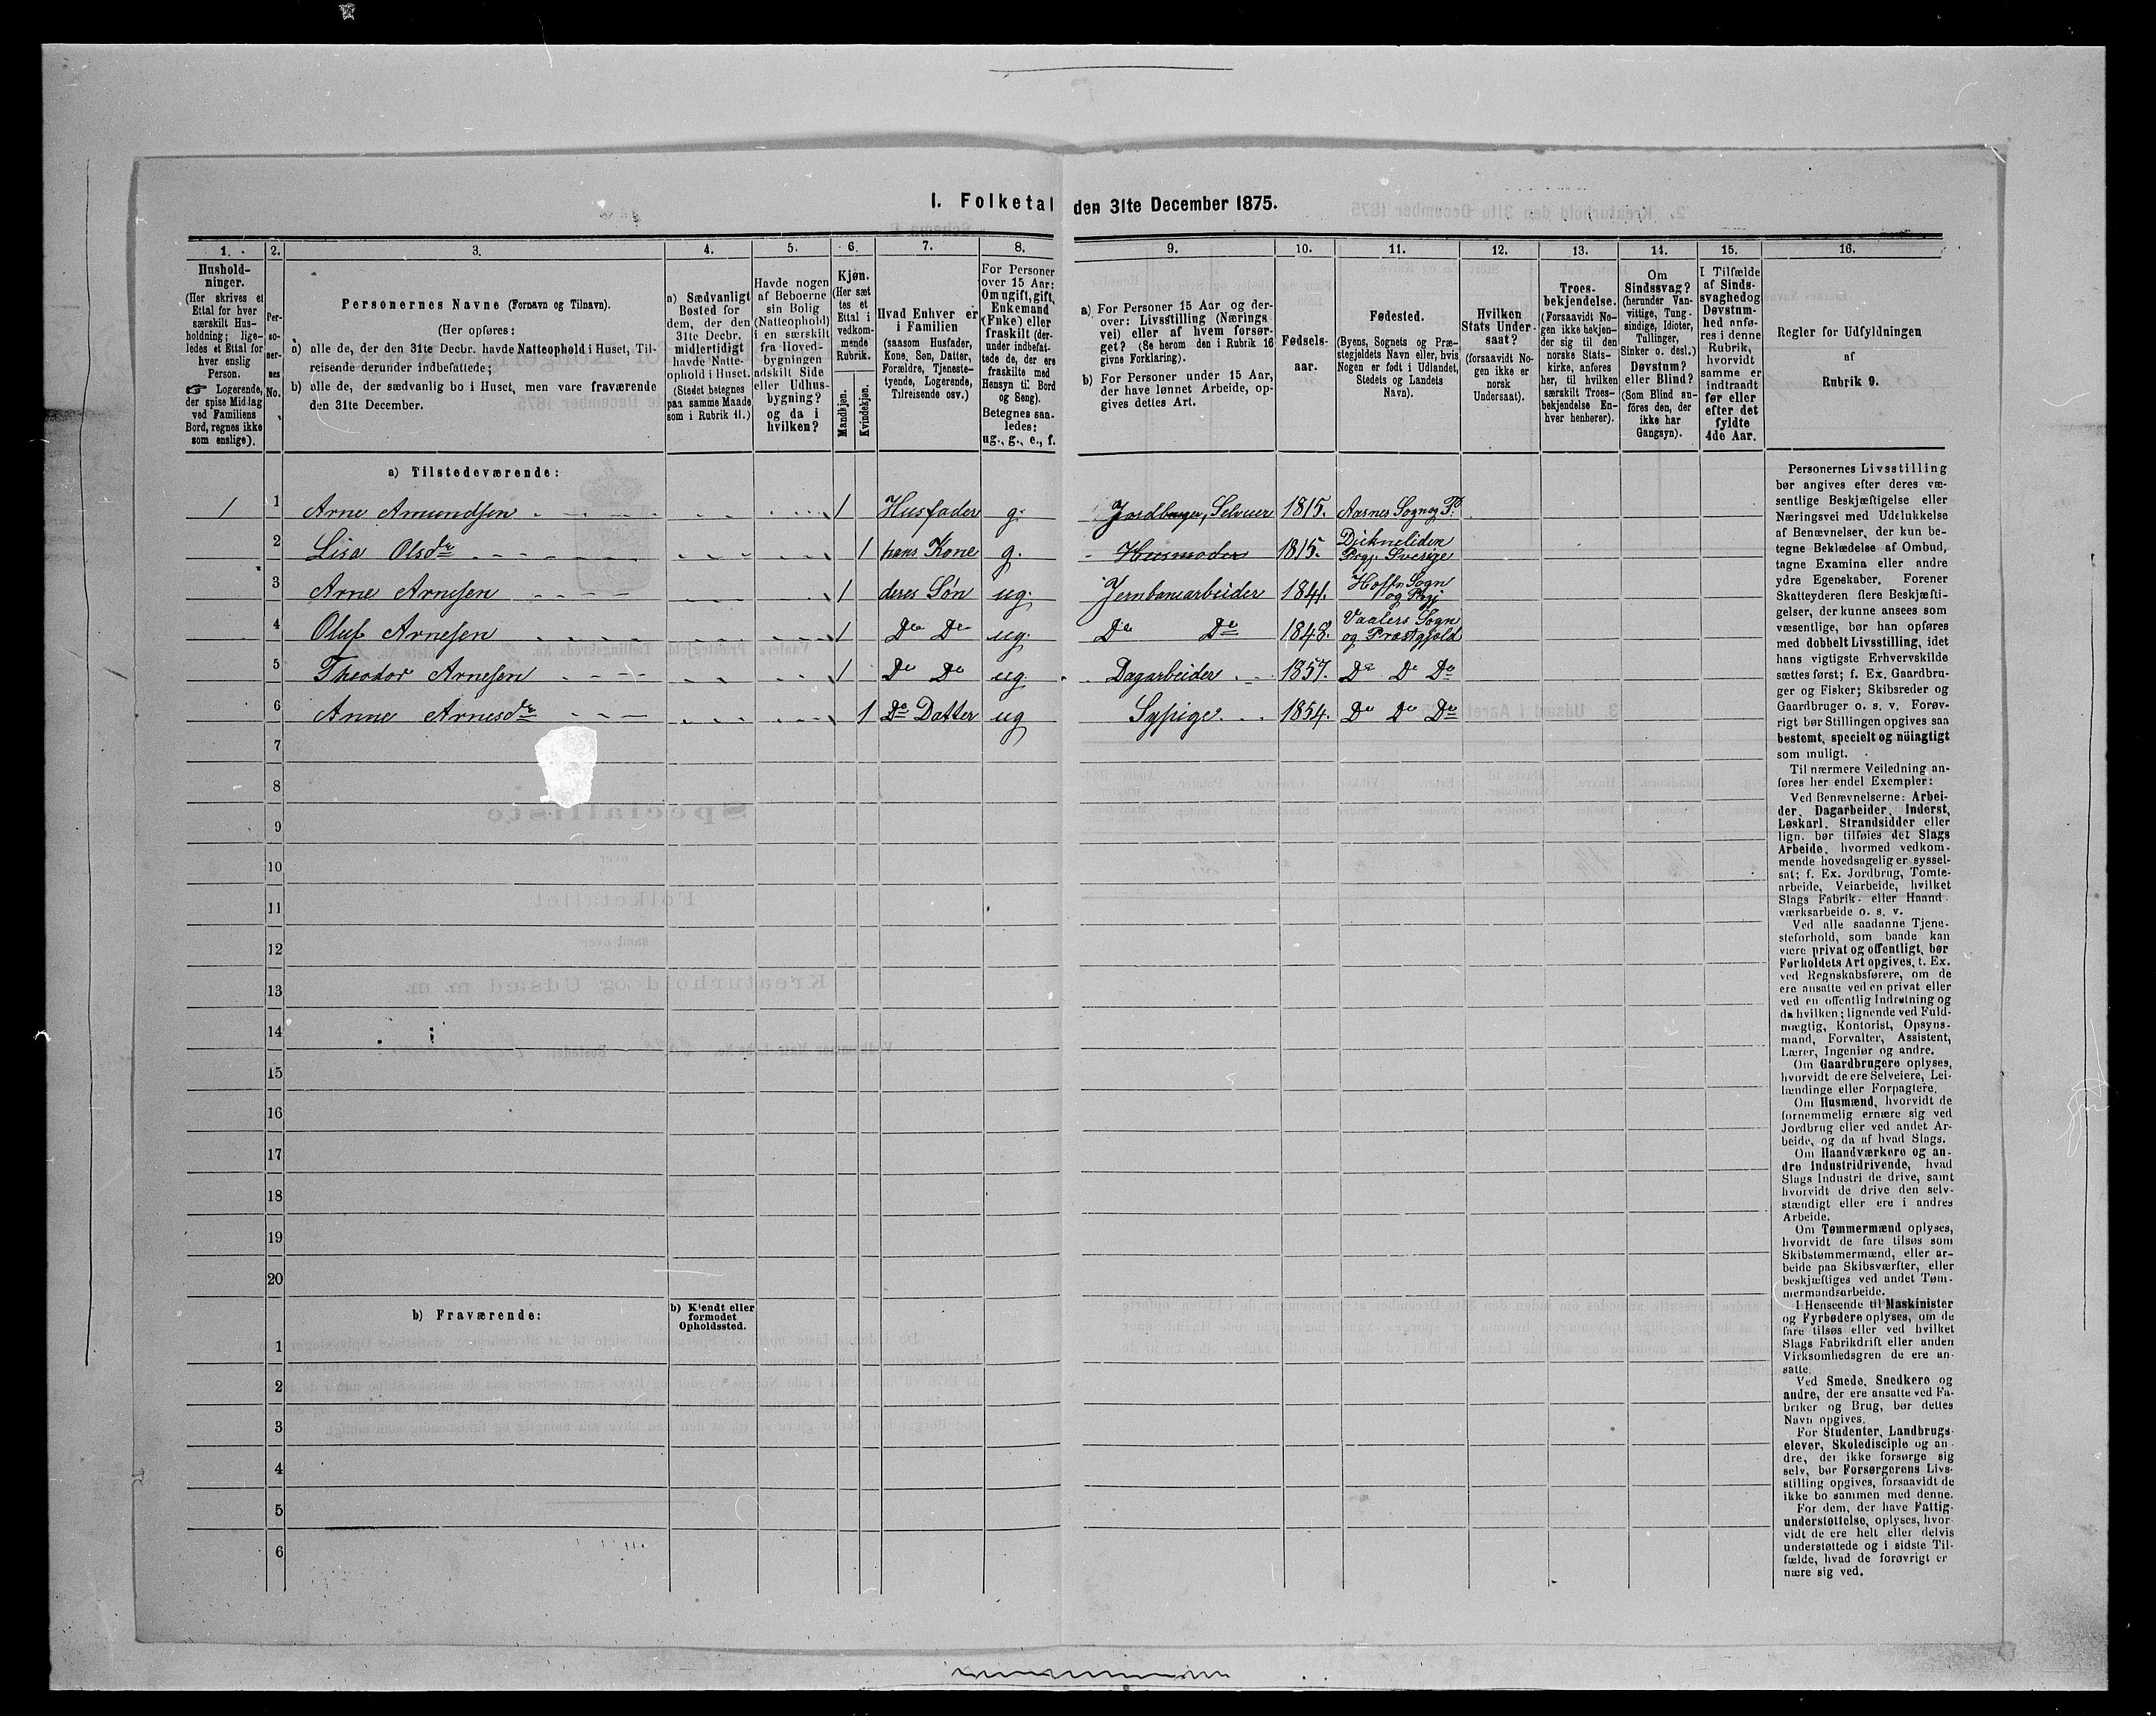 I. Folketal den 31te December 1875.
1. 2. 3. 4. 5. 6. 7. 8. 9. 10. 11. 12. 13. 14. 15. 16.
Hushold-
ninger.
(Her skrives et
Ettal for hver
særskilt Hus-
holdning; lige-
ledes et Ettal for
hver enslig
Person.
☞ Logerende,
der spise Middag
ved Familiens
Bord, regnes ikke
som enslige).
Per-
so-
ner-
nes
No.
Personernes Navne (Fornavn og Tilnavn).
(Her opføres:
a) alle de, der den 31te Decbr. havde Natteophold i Huset, Til-
reisende derunder indbefattede;
b) alle de, der sædvanlig bo i Huset, men vare fraværende
den 31te December.
a) Sædvanligt
Bosted for
dem, der den
31te Decbr.
midlertidigt
havde Natte-
ophold i Huset.
(Stedet betegnes
paa samme Maade
som i Rubrik 11.)
Havde nogen
af Beboerne
sin Bolig
(Natteophold)
i en særskilt
fra Hoved-
bygningen
adskilt Side
eller Udhus-
bygning?
og da i
hvilken?
Kjøn.
(Her sæt
tes et
Ettal i
vedkom-
mende
Rubrik.
Mandkjøn.
Kvindekjøn.
Hvad Enhver er
i Familien
(saasom Husfader,
Kone, Søn, Datter,
Forældre, Tjeneste-
tyende, Logerende,
Tilreisende osv.)
For Personer
over 15 Aar:
Om ugift, gift,
Enkemand
(Enke) eller
fraskilt (der-
under indbefat-
tede de, der ere
fraskilte med
Hensyn til Bord
og Seng).
Betegnes saa-
ledes:
ug., g., e., f.
a) For Personer 15 Aar og der-
over: Livsstilling (Nærings
vei) eller af hvem forsør-
get? (Se herom den i Rubrik 16
givne Forklaring).
b) For Personer under 15 Aar,
der have lønnet Arbeide, op-
gives dettes Art.
Fødsels-
aar.
Fødested.
(Byens, Sognets og Præ-
stegjeldets Navn eller, hvis
Nogen er født i Udlandet,
Stedets og Landets
Navn).
Hvilken
Stats Under-
saat?
(forsaavidt No-
gen ikke er
norsk
Undersaat).
Troes-
bekjendelse.
(Forsaavidt No-
gen ikke bekjen-
der sig til den
norske Stats-
kirke, anføres
her, til hvilken
særskilt Troes-
bekjendelse En-
hver henhører).
Om
Sindssvag?
(herunder Van-
vittige, Tung-
sindige, Idioter,
Tullinger,
Sinker o. desl.)
Døvstum?
eller Blind?
(Som Blind an-
føres den, der
ikke har
Gangsyn).
I Tilfælde
af Sinds-
svaghed og
Døvstum-
hed anfø-
res i denne
Rubrik,
hvorvidt
samme er
indtraadt
før eller
efter det
fyldte
4de Aar.
Regler for Udfyldningen
af
Rubrik 9.
a) Tilstedeværende:
1 1 Arne Amundsen 1 Husfader g. Jordbruger, Selveier 1815. Aasnes Sogn og P.
2 Lisa Olsdr 1 hans Kone g. Husmoder 1815. Dickneliden Prgj. Sverige
3 Arne Arnesen 1 deres Søn ug. Jernbanearbeider 1841. Hoffs Sogn og Prgj
4 Oluf Arnesen 1 Do Do ug. Do Do 1848. Vaalers Sogn og Præstgjeld
5 Theodor Arnesen 1 Do Do ug Dagarbeider 1857. Do Do Do
6 Anne Arnesdr 1 Do Datter ug Sypige 1854. Do Do Do
7
8
9
10
11
12
13
14
15
16
17
18
19
20
b) Fraværende:
b) Kjendt eller
formodet
Opholdssted.
1
2
3
4
5
6
Personernes Livsstilling
bør angives efter deres væ-
sentlige Beskjæftigelse eller
Næringsvei med Udelukkelse
af Benævnelser, der kun be-
tegne Beklædelse af Ombud,
tagne Examina eller andre
ydre Egenskaber. Forener
Skatteyderen flere Beskjæfti-
gelser, der kunne ansees som
væsentlige, bør han opføres
med dobbelt Livsstilling, idet
hans vigtigste Erhvervskilde
sættes først; f. Ex. Gaardbru-
ger og Fisker; Skibsreder og
Gaardbruger o. s. v. Forøv-
rigt bør Stillingen opgives saa
bestemt, specielt og nöiagtigt
som muligt.
Til nærmere Veiledning an-
føres her endel Exempler:
Ved Benævnelserne: Arbei-
der, Dagarbeider, Inderst,
Løskarl, Strandsidder eller
lign. bør tilføies det Slags
Arbeide, hvormed vedkom-
mende hovedsagelig er syssel-
sat; f. Ex. Jordbrug, Tomte-
arbeide, Veiarbeide, hvilket
Slags Fabrik- eller Haand-
værksarbeide o. s. v.
Ved alle saadanne Tjene-
steforhold, som baade kan
være privat og offentligt, bør
Forholdets Art opgives, t. Ex.
ved Regnskabsførere, om de
ere ansatte ved en privat eller
ved en offentlig Indretning og
da hvilken; lignende ved Fuld-
mægtig, Kontorist, Opsyns-
mand, Forvalter, Assistent,
Lærer, Ingeniør og andre.
Om Gaardbrugere oplyses,
hvorvidt de ere Selveiere, Lei-
lændinge eller Forpagtere.
Om Husmænd, hvorvidt de
fornemmelig ernære sig ved
Jordbrug eller ved andet Ar-
beide, og da af hvad Slags.
Om Haandværkere og an-
dre Industridrivende, hvad
Slags Industri de drive, samt
hvorvidt de drive den selv-
stændigt eller ere i andres
Arbeide.
Om Tømmermænd oplyses,
hvorvidt de fare tilsøs som
Skibstømmermænd, eller ar-
beide paa Skibsværfter, eller
beskjæftiges ved andet Tøm-
mermandsarbeide.
I Henseende til Maskinister
og Fyrbødere oplyses, om de
fare tilsøs eller ved hvilket
Slags Fabrikdrift eller anden
Virksomhedsgren de ere an-
satte.
Ved Smede, Snedkere og
andre, der ere ansatte ved Fa-
briker og Brug, bør dettes
Navn opgives.
For Studenter, Landbrugs-
elever, Skoledisciple og an-
dre, der ikke forsørge sig
selv, bør Forsørgerens Livs-
stilling opgives, forsaavidt de
ikke bo sammen med denne.
For dem, der have Fattig-
understøttelse, oplyses, hvor-
vidt de ere helt eller delvis
understøttede og i sidste Til-
fælde, hvad de forøvrigt er-
nære sig ved.